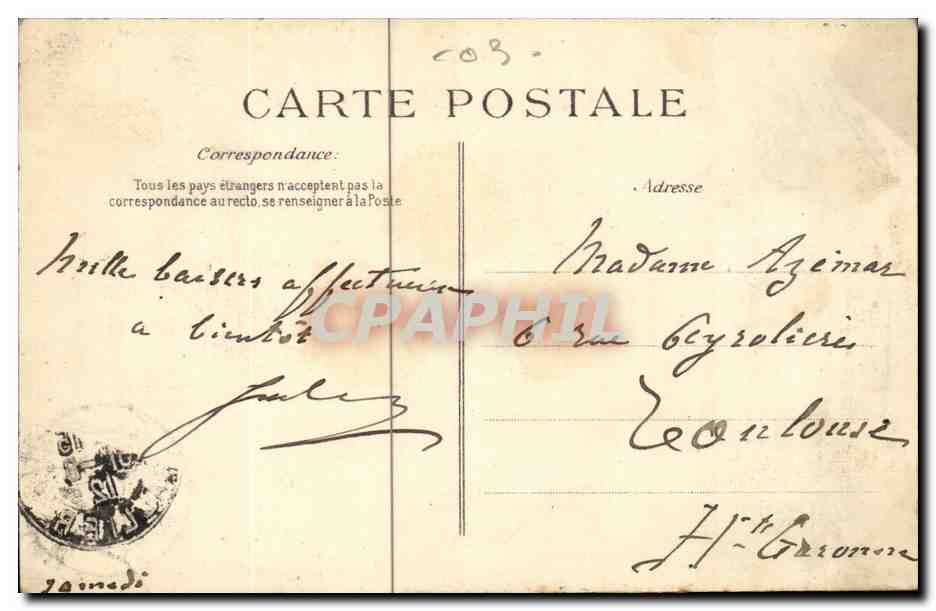 03
CARTE POSTALE
Correspondance:
Tous les pays étrangers n'acceptent pas la
correspondance au recto, se renseigner à la Poste
Mille baisers affectueux
a bientôt
Jules
samedi
Adresse
Madame Azémar
6 rue Peyrolières
Toulouse
Hte Garonne
CPAPHIL